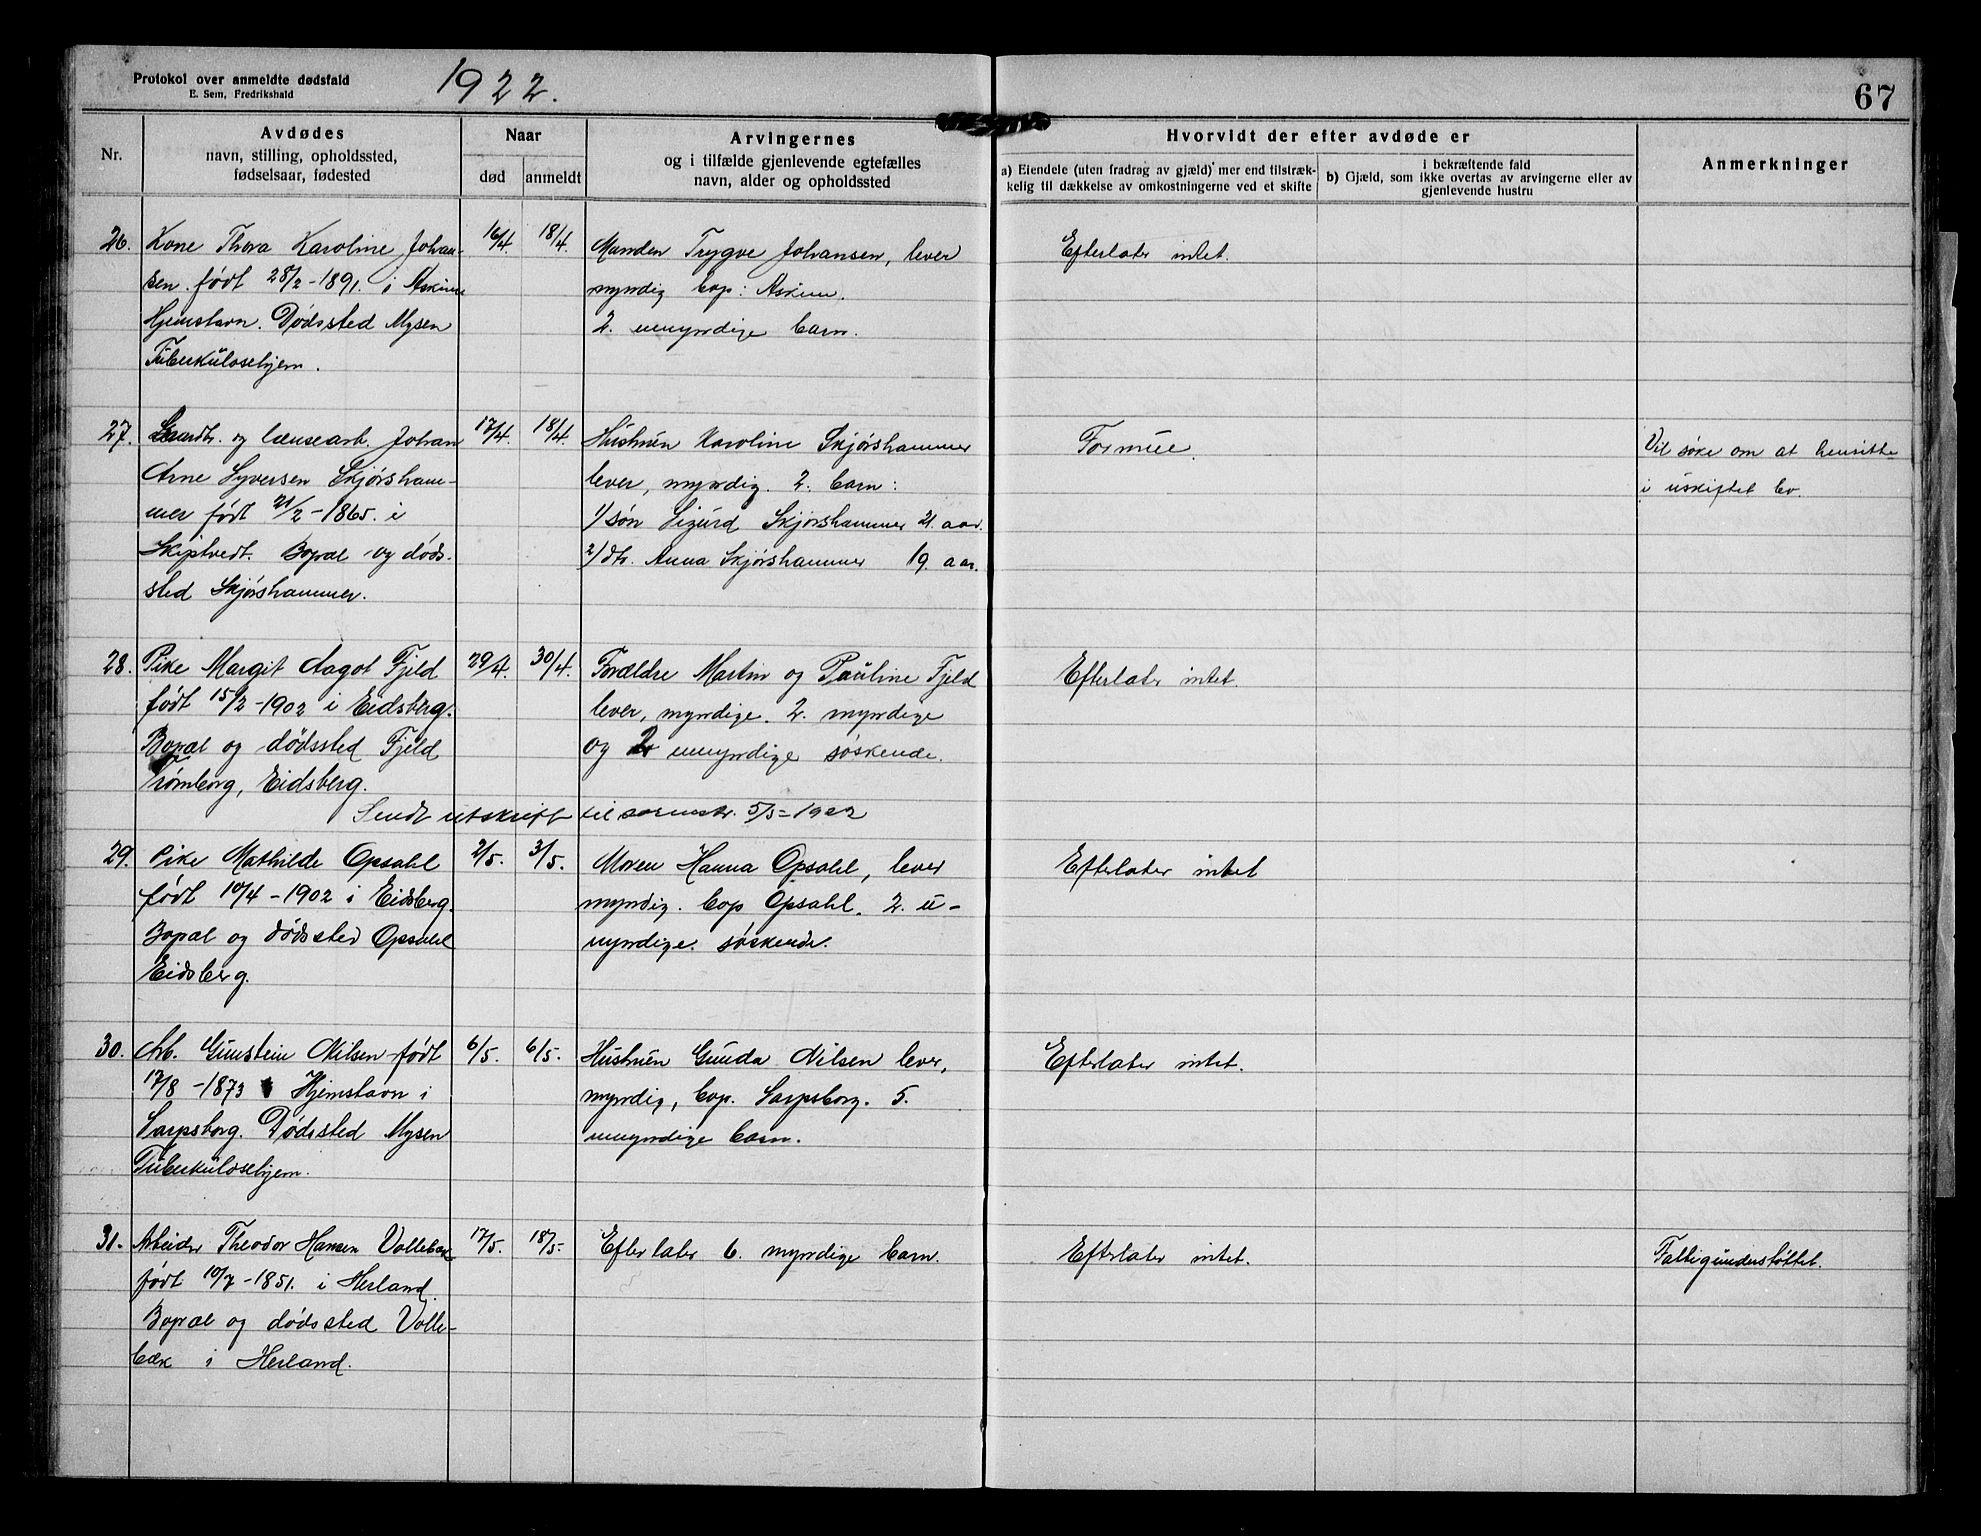 Protokol over anmeldte dødsfald
E. Sem, Fredrikshald
1922.
67
Nr.
Avdødes
navn, stilling, opholdssted,
fødselsaar, fødested
Naar
død
anmeldt
Arvingernes
og i tilfælde gjenlevende egtefælles
navn, alder og opholdssted
Hvorvidt der efter avdøde er
a) Eiendele (uten fradrag av gjæld) mer end tilstræk-
kelig til dækkelse av omkostningerne ved et skifte
i bekræftende fald
b) Gjæld, som ikke overtas av arvingerne eller av
gjenlevende hustru
Anmerkninger
26.
Kone Thora Karoline Johan-
sen. født 28/2-1891. i Askim
Hjemstavn. Dødssted Mysen
Tuberkulosehjem.
16/4.
18/4.
Manden Trygve Johansen, lever
myndig bop: Askim.
2. umyndige barn.
Efterlater intet.
27.
og lænsearb. Johan
Arne Syversen Skjørsham-
mer født 21/2-1865. i
Skiptvedt. Bopæl og døds-
sted Skjørshammer.
17/4.
18/4.
Hustruen Karoline Skjørshammer
lever, myndig. 2. barn:
1/ søn Sigurd Skjørshammer 21. aar.
2/ dtr. Anna Skjørshammer 19. aar.
Formue.
Vil søke om at hensitte
i uskiftet bo.
28.
Pike Margit Aagot Fjeld
født 15/2-1902 i Eidsberg.
Bopæl og dødssted Fjeld
Trømborg, Eidsberg.
29/4.
30/4.
Forældre Martin og Pauline Fjeld
lever, myndige. 2. myndige
og 2 umyndige søskende.
Efterlater intet.
Sendt utskrift til sorenskr. 5/5-1922
29.
Pike Mathilde Opsahl
født 10/4-1902 i Eidsberg.
Bopæl og dødssted Opsahl
Eidsberg.
2/5.
3/5.
Moren Hanna Opsahl, lever
myndig. bop Opsahl. 2. u-
myndige. søskende.
Efterlater intet
30.
Arb. Gunstein Nilsen født
17/8-1873 Hjemstavn i
Sarpsborg. Dødssted Mysen
Tuberkulosehjem.
6/5.
6/5.
Hustruen Gunda Nilsen lever,
myndig, bop. Sarpsborg. 5.
umyndige barn.
Efterlater intet.
31.
Arbeider Theodor Hansen Vollebæk
født 10/7-1851. i Herland.
Bopæl og dødssted Volle-
bæk i Herland.
17/5.
18/5.
Efterlater 6. myndige barn.
Efterlater intet.
Fattigunderstøttet.